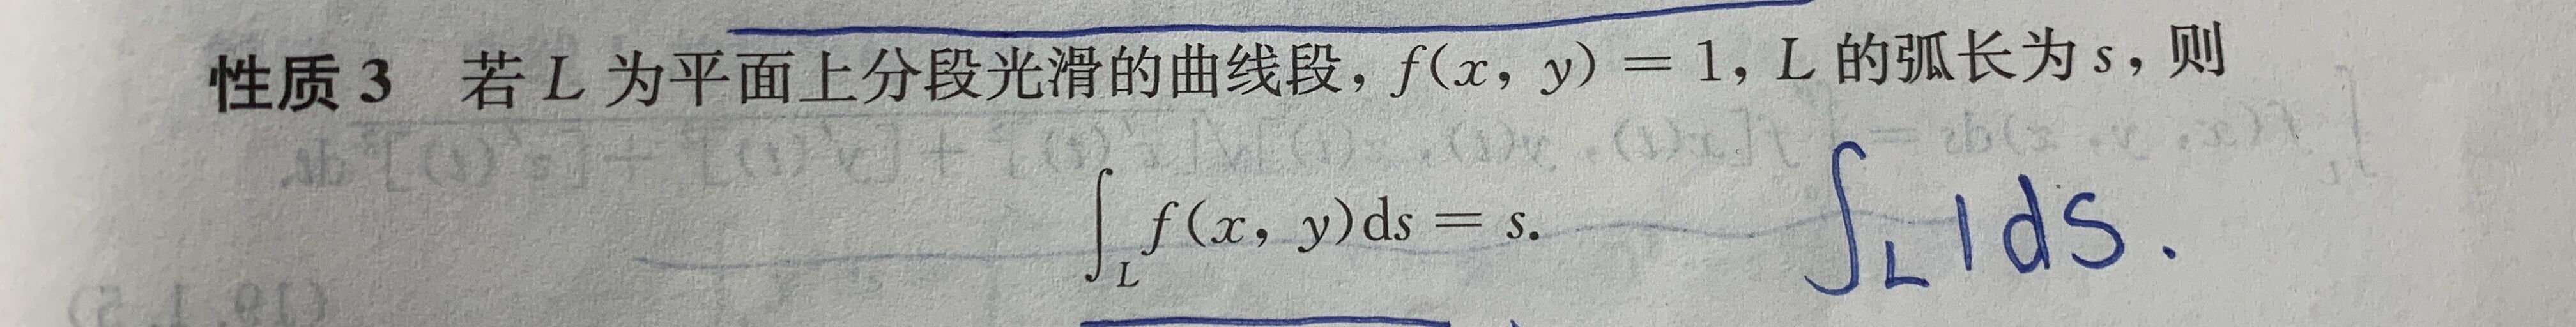 性质 3 若 L 为平面上分段光滑的曲线段, f(x, y) = 1, L 的弧长为 s, 则
∫_L f(x, y)ds = s. ∫_L 1 ds.